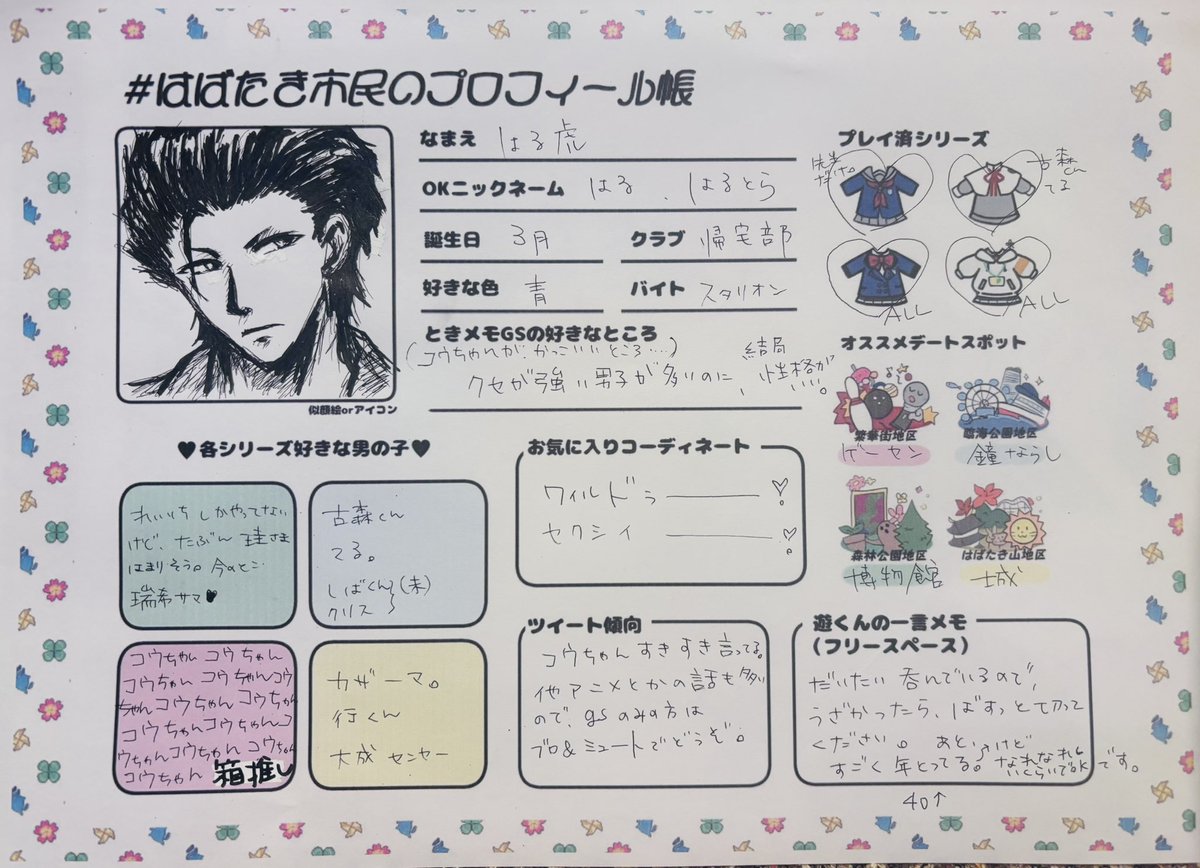 #はばたき市民のプロフィール帳
なまえ はる虎
OKニックネーム はる、はるとら
誕生日 3月
クラブ 帰宅部
好きな色 青
バイト スタリオン
ときメモGSの好きなところ
(コウちゃんが、かっこいいところ…)
クセが強い男子が多いのに、結局性格がいい。
似顔絵orアイコン
プレイ済シリーズ
古森くん
てる
ALL
ALL
オススメデートスポット
繁華街地区
ゲーセン
臨海公園地区
鐘ならし
森林公園地区
博物館
はばたき山地区
城
♥各シリーズ好きな男の子♥
れいいちしかやってない
けど、たぶん 珪さま
はまりそう。今のとこ
瑞希サマ♥
古森くん
てる。
しばくん(未)
クリス
コウちゃん コウちゃん
コウちゃん コウちゃんコウ
ちゃんコウちゃん コウちゃん
コウちゃんコウちゃんコ
ウちゃんコウちゃん コウちゃん
コウちゃん 箱推し
カザーマ。
行くん
大成 センセー
お気に入りコーディネート
ワイルドぅ――♡!
セクシィ――♡!
ツイート傾向
コウちゃん すきすき言ってる。
他アニメとかの話も多い
ので、gsのみの方は
ブロ&ミュートでどうぞ。
遊くんの一言メモ
(フリースペース)
だいたい 呑んでいるので、
うざかったら、ばすっと切って
ください。あと、けど
すごく 年とってる。なれなれしいくらいでOKです。
40↑